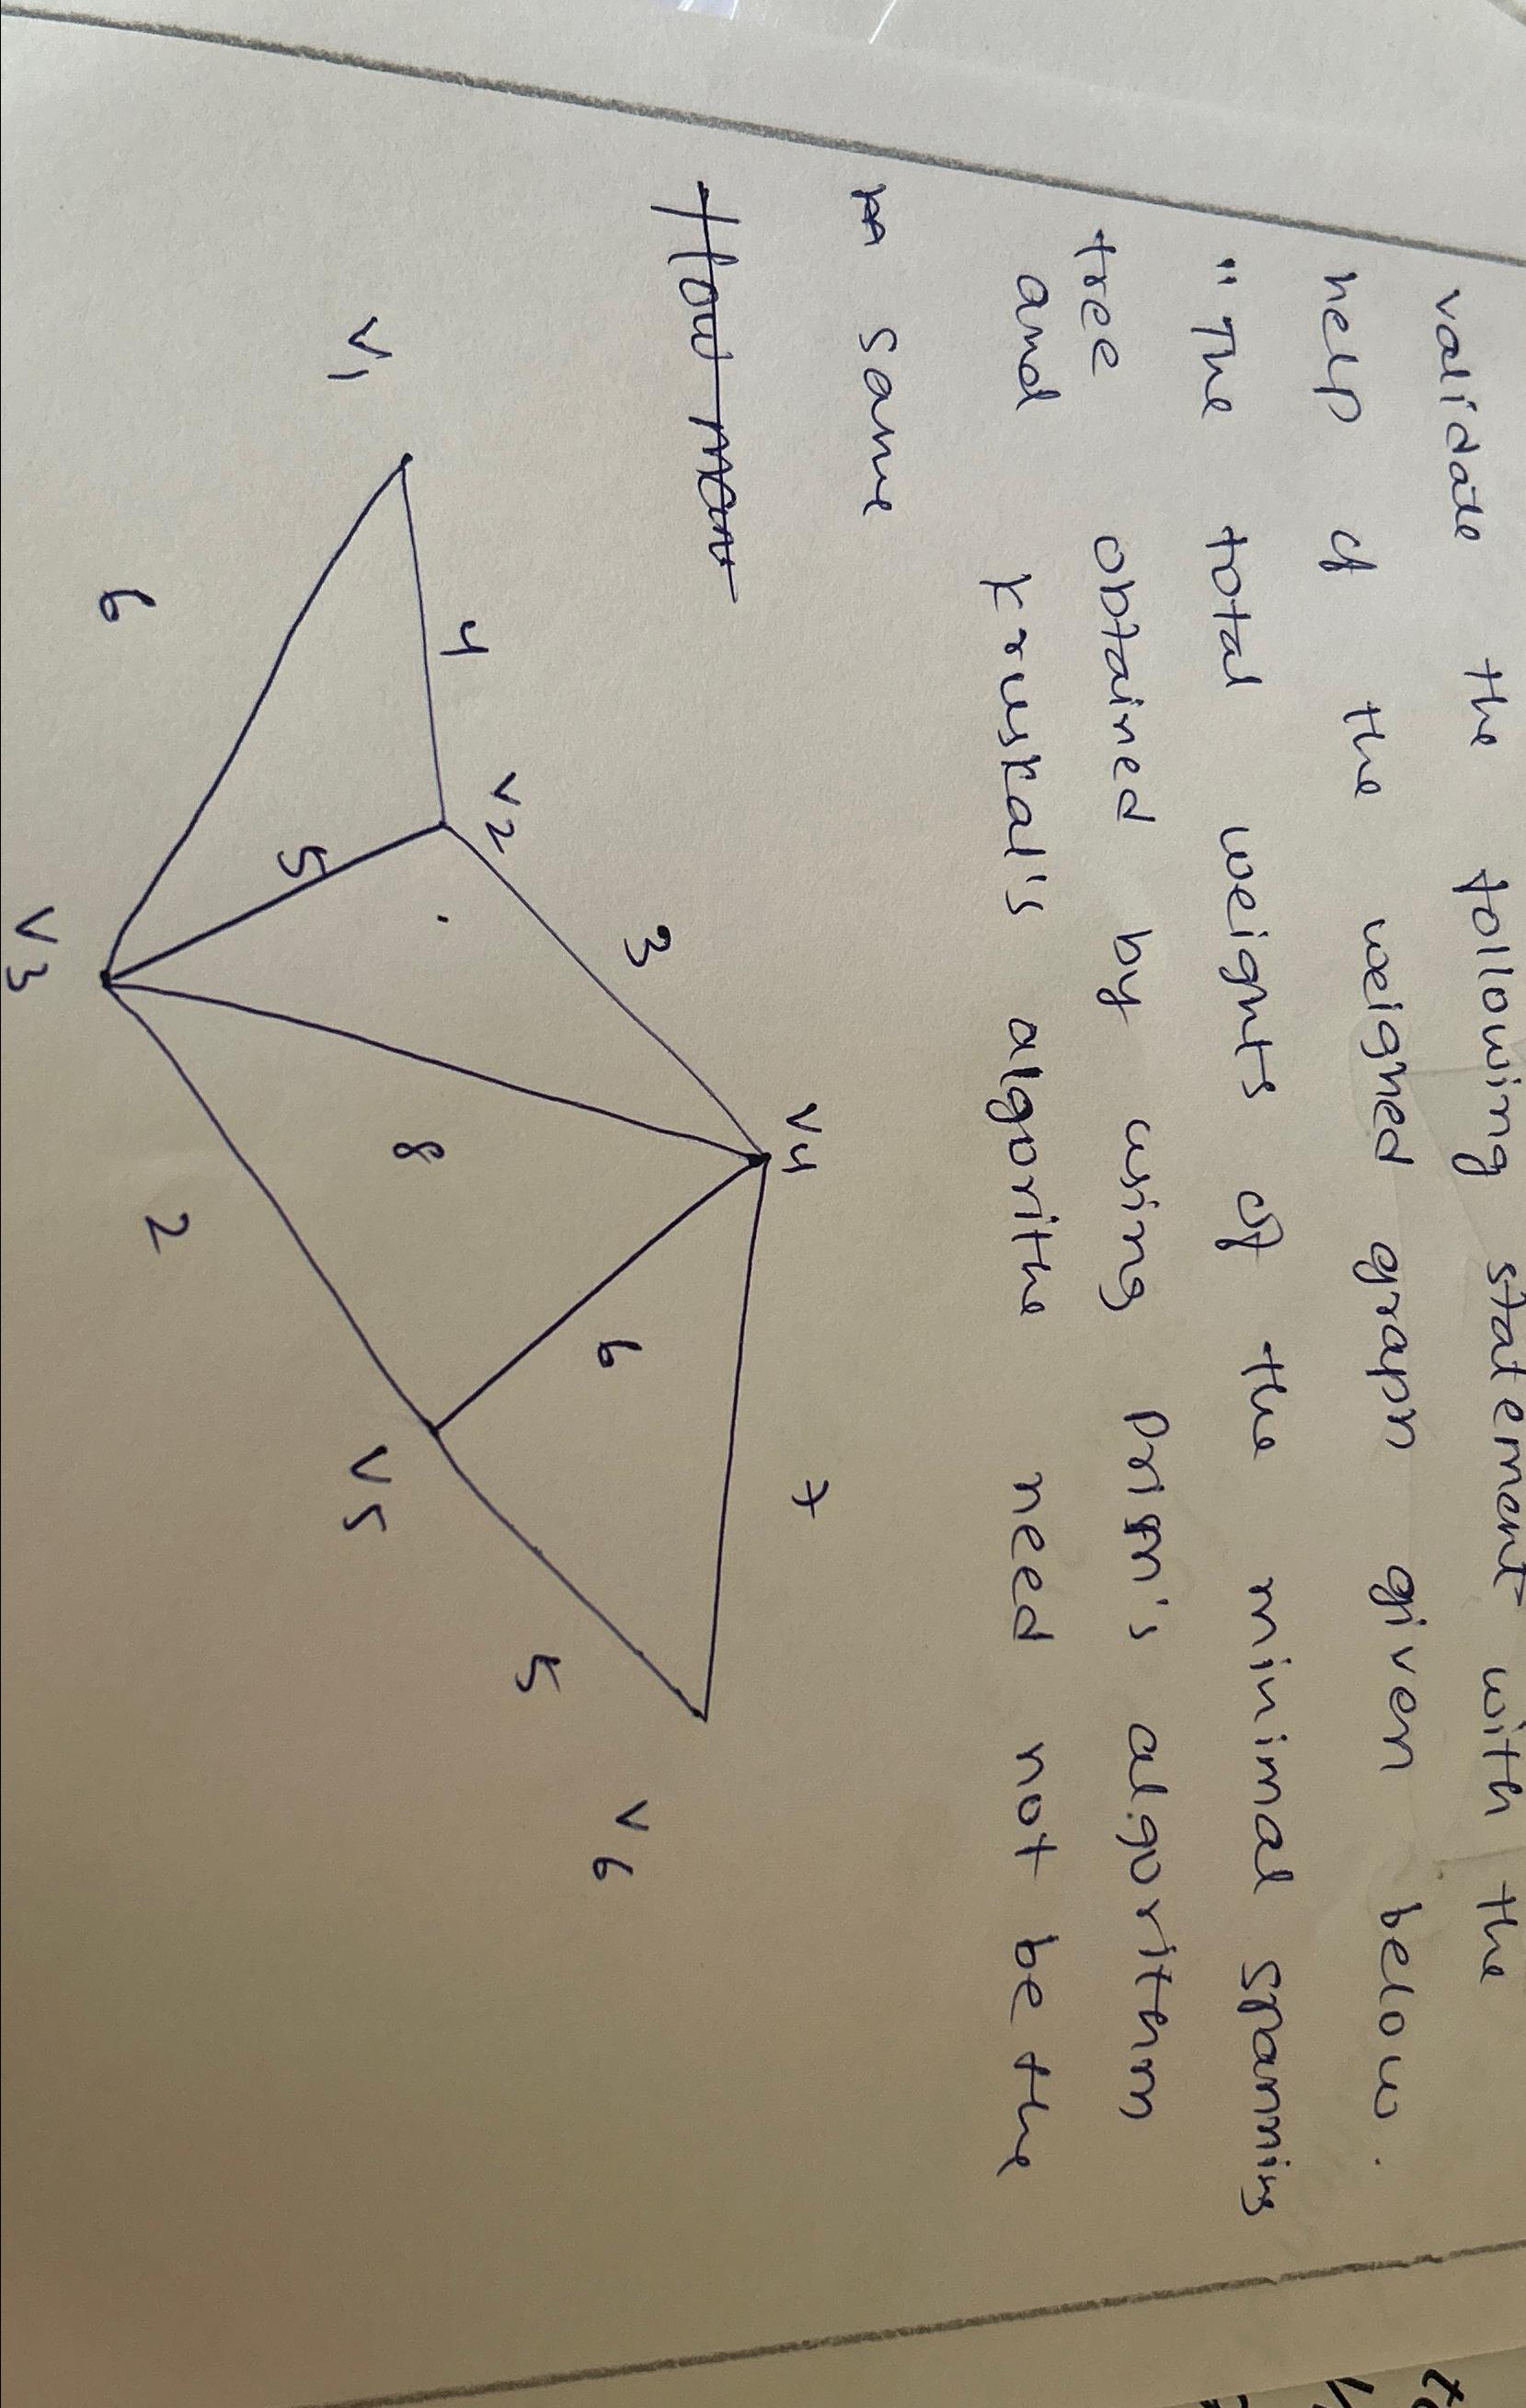 validate the following statement with the
help of the weighed graph given below.
"The total weights of the minimal spanning
tree obtained by using Prim's algorithm
and kruskal's algorithe need not be the
same
How man
V1
4
V2
3
V4
7
V6
6
5
8
6
5
V3
2
V5